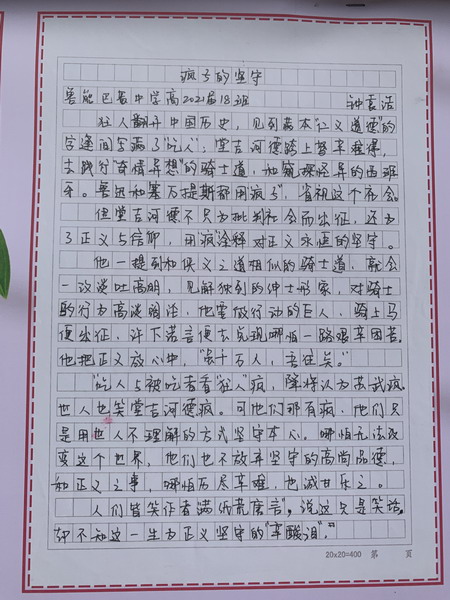 疯子的坚守
鲁能巴蜀中学高2021届18班 钟袁浩
狂人翻开中国历史，见到满本"仁义道德"的
字缝间写满了"吃人"；堂吉河德跨上驽骍难得，
去践行"奇情异想"的骑士道，和窥探怪异的西班
牙。鲁迅和塞万提斯都用疯子，省视这个社会。
但堂吉河德不只为批判社会而出征，还为
了正义与信仰，用"疯"诠释对正义永恒的坚守。
他一提到和侠义之道相似的骑士道，就会
一改谈吐高明，见解独到的绅士形象，对骑士
的行为高谈阔论，他要做行动的巨人，骑上马
便出征，许下诺言便去兑现哪怕一路艰辛困苦。
他把正义放心中，"虽千万人，吾往矣。"
"吃人与被吃者看"狂人"疯，降将认为苏武疯
世人也笑堂吉河德疯。可他们那有疯，他们只
是用世人不理解的方式坚守本心。哪怕无法改
变这个世界，他们也不放弃坚守的高尚品德，
和正义之事，哪怕历尽辛难，也减甘乐之。
人们皆笑作者满纸荒唐言"，说这只是笑话。
却不知这一生为正义坚守的"辛酸泪"。"
20x20=400 第 页